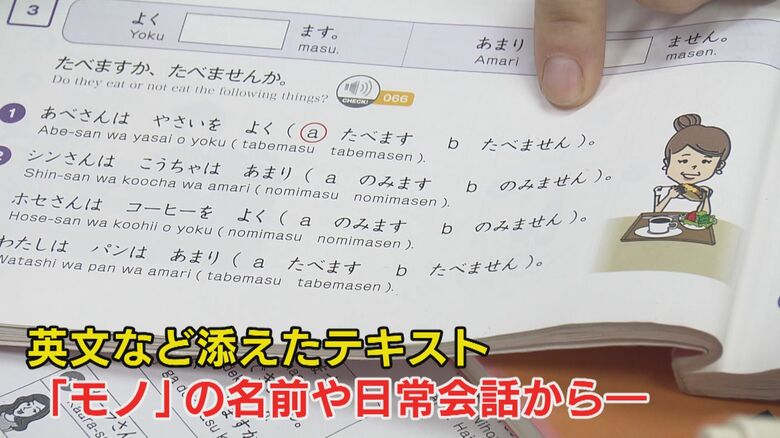 3
よく ます。
Yoku masu.
あまり ません。
Amari masen.
たべますか、たべませんか。
Do they eat or not eat the following things?
CHECK! 066
1 あべさんは やさいを よく ( a たべます b たべません )。
Abe-san wa yasai o yoku ( tabemasu tabemasen ).
2 シンさんは こうちゃは あまり ( a のみます b のみません )。
Shin-san wa koocha wa amari ( nomimasu nomimasen ).
ホセさんは コーヒーを よく ( a のみます b のみません )。
Hose-san wa koohii o yoku ( nomimasu nomimasen ).
わたしは パンは あまり ( a たべます b たべません )。
Watashi wa pan wa amari ( tabemasu tabemasen ).
英文など添えたテキスト
「モノ」の名前や日常会話から―